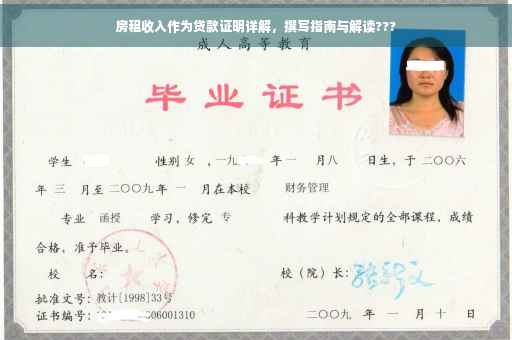 房租收入作为贷款证明详解，撰写指南与解读???
成人高等教育
毕业证书
学生 性别 女 ，一九 年一 月八 日生，于 二〇〇六
年 三 月至 二〇〇九 年 一 月在本校 财务管理
专业 函授 学习，修完 专 科教学计划规定的全部课程，成绩
合格，准予毕业。
校 名： 校（院）长：
批准文号：教计[1998]33号
证书编号： 06001310 二〇〇九 年 一 月 十 日